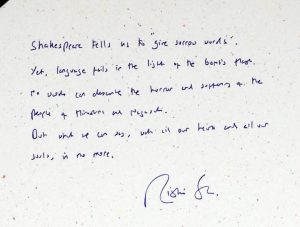 Shakespeare tells us to "give sorrow words".
Yet, language fails in the light of the bomb's flash.
No words can describe the horror and suffering of the
people of Hiroshima and Nagasaki.
But what we can say, with all our hearts and all our
souls, is no more.
Rishi